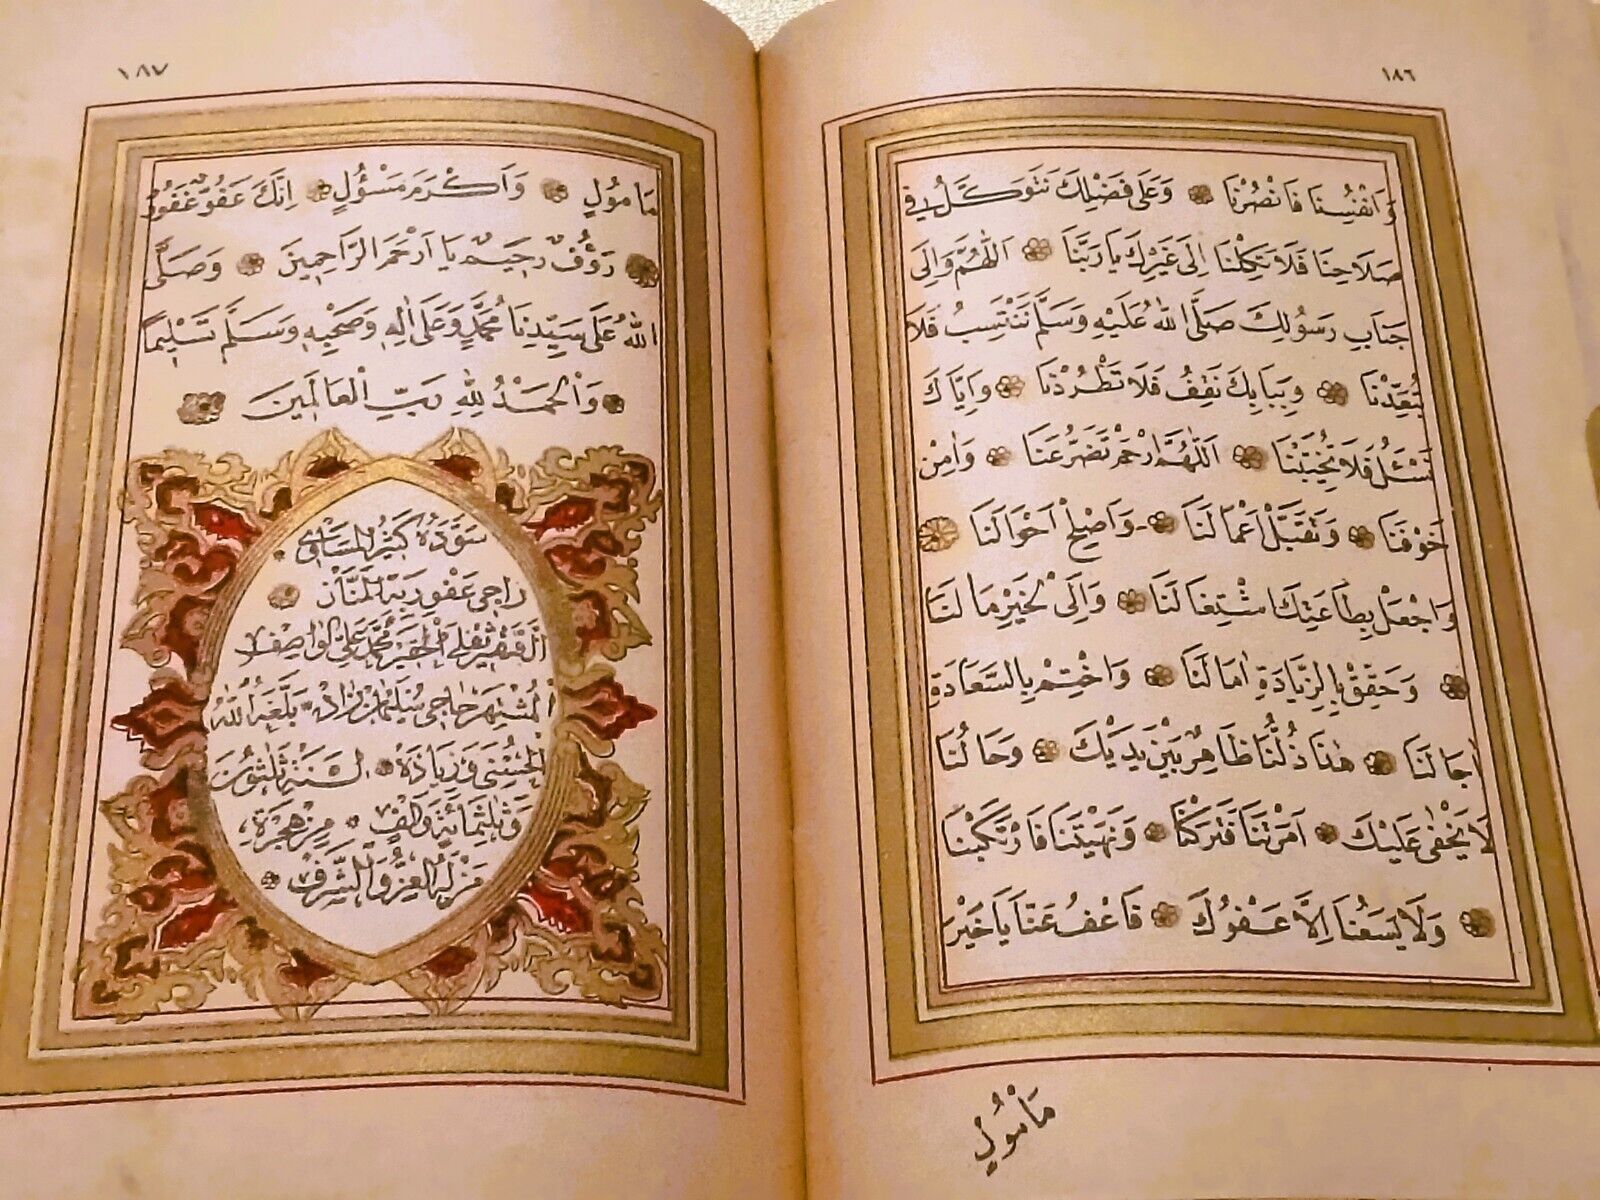 ١٨٦
وَاَنْفُسِنَا فَانْصُرْنَا وَعَلَى فَضْلِكَ نَتَوَكَّلُ فِي
صَلَاحِنَا فَلَا تَكِلْنَا اِلَى غَيْرِكَ يَا رَبَّنَا اَللّٰهُمَّ وَاِلَى
جَنَابِ رَسُولِكَ صَلَّى اللّٰهُ عَلَيْهِ وَسَلَّمَ نَنْتَسِبُ فَلَا
تُبَعِّدْنَا وَبِبَابِكَ نَقِفُ فَلَا تَطْرُدْنَا وَاِيَّاكَ
نَسْئَلُ فَلَا تُخَيِّبْنَا اَللّٰهُمَّ ارْحَمْ تَضَرُّعَنَا وَاٰمِنْ
خَوْفَنَا وَتَقَبَّلْ اَعْمَالَنَا وَاَصْلِحْ اَحْوَالَنَا
وَاجْعَلْ بِطَاعَتِكَ اشْتِغَالَنَا وَاِلَى الْخَيْرِ مَاٰلَنَا
وَحَقِّقْ بِالزِّيَادَةِ اٰمَالَنَا وَاخْتِمْ بِالسَّعَادَةِ
اٰجَالَنَا هٰذَا ذُلُّنَا ظَاهِرٌ بَيْنَ يَدَيْكَ وَحَالُنَا
لَا يَخْفٰى عَلَيْكَ اَمَرْتَنَا فَتَرَكْنَا وَنَهَيْتَنَا فَارْتَكَبْنَا
وَلَا يَسَعُنَا اِلَّا عَفْوُكَ فَاعْفُ عَنَّا يَا خَيْرَ
مَأْمُولٍ
١٨٧
مَأْمُولٍ وَاَكْرَمَ مَسْؤُلٍ اِنَّكَ عَفُوٌّ غَفُورٌ
رَؤُفٌ رَحِيمٌ يَا اَرْحَمَ الرَّاحِمِينَ وَصَلَّى
اللّٰهُ عَلَى سَيِّدِنَا مُحَمَّدٍ وَعَلَى اٰلِهِ وَصَحْبِهِ وَسَلَّمَ تَسْلِيمًا
وَالْحَمْدُ لِلّٰهِ رَبِّ الْعَالَمِينَ
سَوَّدَهُ كَثِيرُ الْمَسَاوِى
رَاجِى عَفْوِ رَبِّهِ الْمَنَّانِ
الْحَقِيرُ مُحَمَّد عَلِى الْوَاصِفِى
الْمُشْتَهِرُ حَاجِى سُلَيْمَان زَادَه بَلَّغَهُ اللّٰهُ
الْحُسْنٰى وَزِيَادَةً السَنَةِ ثَلٰثُونَ
وَثَلٰثِمَائَةٍ وَاَلْفٍ مِنْ هِجْرَةِ
مَنْ لَهُ الْعِزُّ وَالشَّرَفُ